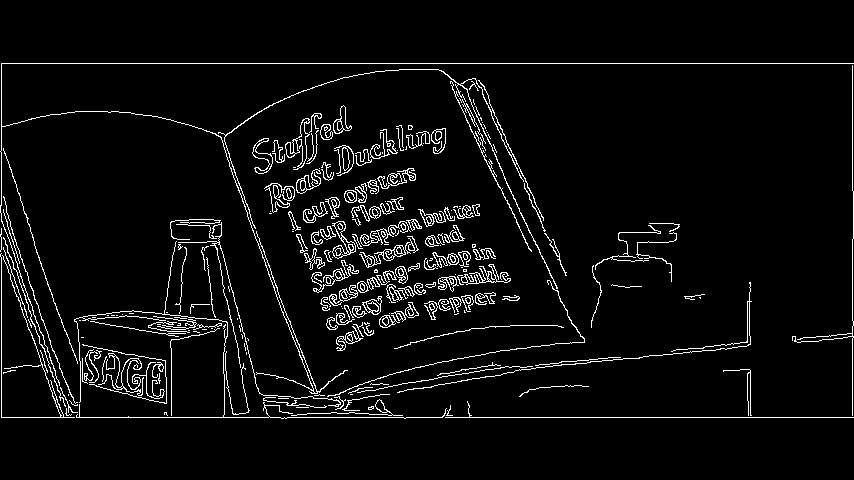 Stuffed
Roast Duckling
1 cup oysters
1 cup flour
½ tablespoon butter
Soak bread and
seasoning~chop in
celery fine~sprinkle
salt and pepper ~
SAGE